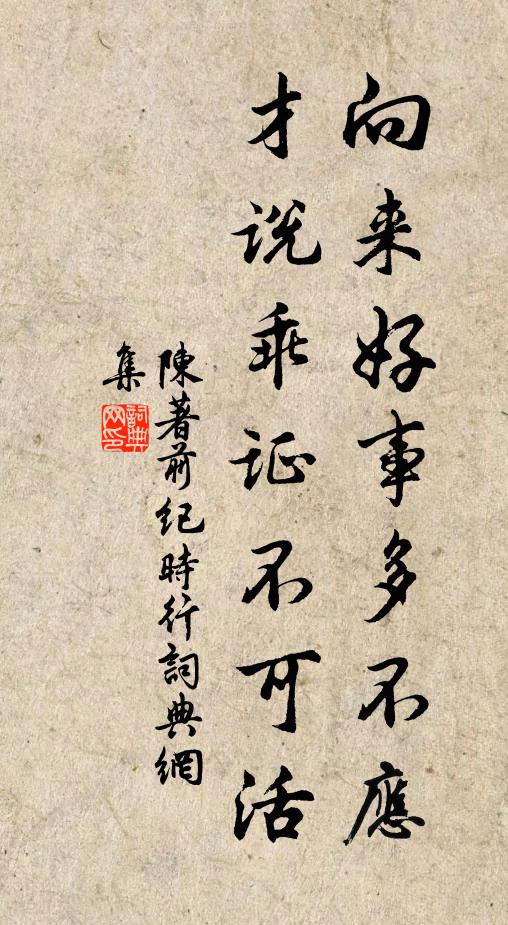 向来好事多不應
才说乖证不可活
陳著前纪時行詞典網
集
詞典
网印